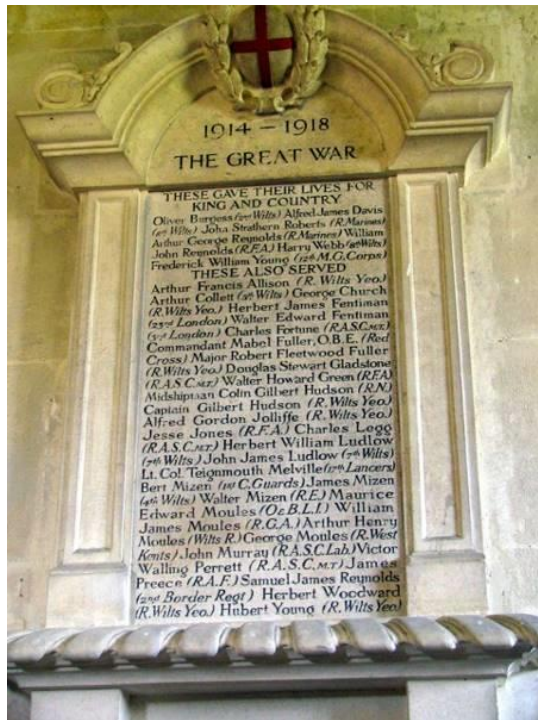 1914 - 1918
THE GREAT WAR
THESE GAVE THEIR LIVES FOR
KING AND COUNTRY
Oliver Burgess (2nd Wilts) Alfred James Davis
Wilts) John Strathern Roberts (R.Marines)
Arthur George Reynolds (R.Marines) William
John Reynolds (R.F.A.) Harry Webb Wilts)
Frederick William Young (12th M.G.Corps)
THESE ALSO SERVED
Arthur Francis Allison (R. Wilts Yeo.)
Arthur Collett Wilts) George Church
(R.Wilts Yeo.) Herbert James Fentiman
(23rd London) Walter Edward Fentiman
London) Charles Fortune (R.A.S.C.M.T.)
Commandant Mabel Fuller, O.B.E. (Red
Cross) Major Robert Fleetwood Fuller
(R.Wilts Yeo.) Douglas Stewart Gladstone
(R.A.S.C.M.T.) Walter Howard Green (R.F.A)
Midshipman Colin Gilbert Hudson (R.N.)
Captain Gilbert Hudson (R.Wilts Yeo.)
Alfred Gordon Jolliffe (R.Wilts Yeo.)
Jesse Jones (R.F.A.) Charles Legg
(R.A.S.C.M.T.) Herbert William Ludlow
(7th Wilts) John James Ludlow (7th Wilts)
Lt. Col. Teignmouth Melville (17th Lancers)
Bert Mizen (1st C.Guards) James Mizen
(4th Wilts) Walter Mizen (R.E.) Maurice
Edward Moules (Ox B.L.I.) William
James Moules (R.G.A.) Arthur Henry
Moules (Wilts R.) George Moules (R.West
Kents) John Murray (R.A.S.C.Lab.) Victor
Walling Perrett (R.A.S.C.M.T) James
Preece (R.A.F.) Samuel James Reynolds
(2nd Border Regt) Herbert Woodward
(R.Wilts Yeo.) Hubert Young (R.Wilts Yeo.)